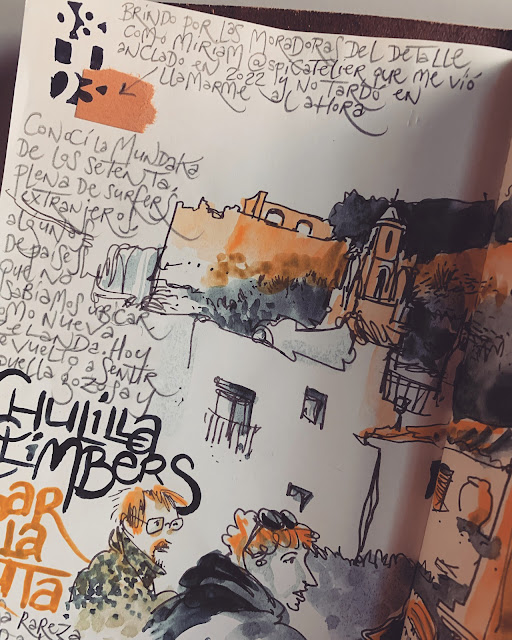 BRINDO POR LAS MORADORAS DEL DETALLE
COMO MIRIAM @SPICATELIER QUE ME VIÓ
ANCLADO EN 2022 Y NO TARDÓ EN
LLAMARME AL AHORA
CONOCÍ LA MUNDAKA
DE LOS SETENTA,
PLENA DE SURFERS
EXTRANJEROS
ALGUNOS
DE PAÍSES
QUE NO
SABÍAMOS UBICAR
COMO NUEVA
ZELANDA. HOY
HE VUELTO A SENTIR
AQUELLA GOZOSA Y
CHULILLA
CLIMBERS
BAR
LA
RAREZA